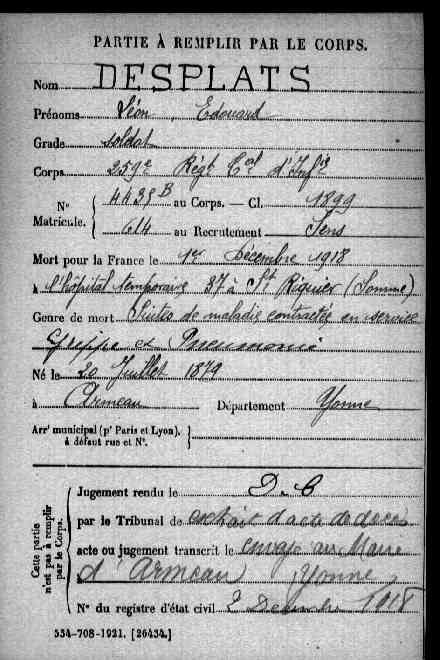 PARTIE À REMPLIR PAR LE CORPS.
Nom DESPLATS
Prénoms Léon, Edouard
Grade soldat
Corps 259e Régt Cal d'Infie
N° Matricule. { 4435B au Corps. — Cl. 1899
614 au Recrutement Sens
Mort pour la France le 1er Décembre 1918
à l'hôpital temporaire 37 à St Riquier (Somme)
Genre de mort Suites de maladie contractée en service
Grippe et Pneumonie
Né le 20 Juillet 1879
à Armeau Département Yonne
Arr' municipal (p' Paris et Lyon), à défaut rue et N°. }
Cette partie n'est pas à remplir par le Corps.
Jugement rendu le D.C
par le Tribunal de extrait d'acte de décès
acte ou jugement transcrit le envoyé au Maire
d'Armeau Yonne
N° du registre d'état civil 2 Décembre 1918
534-708-1921. [26434.]